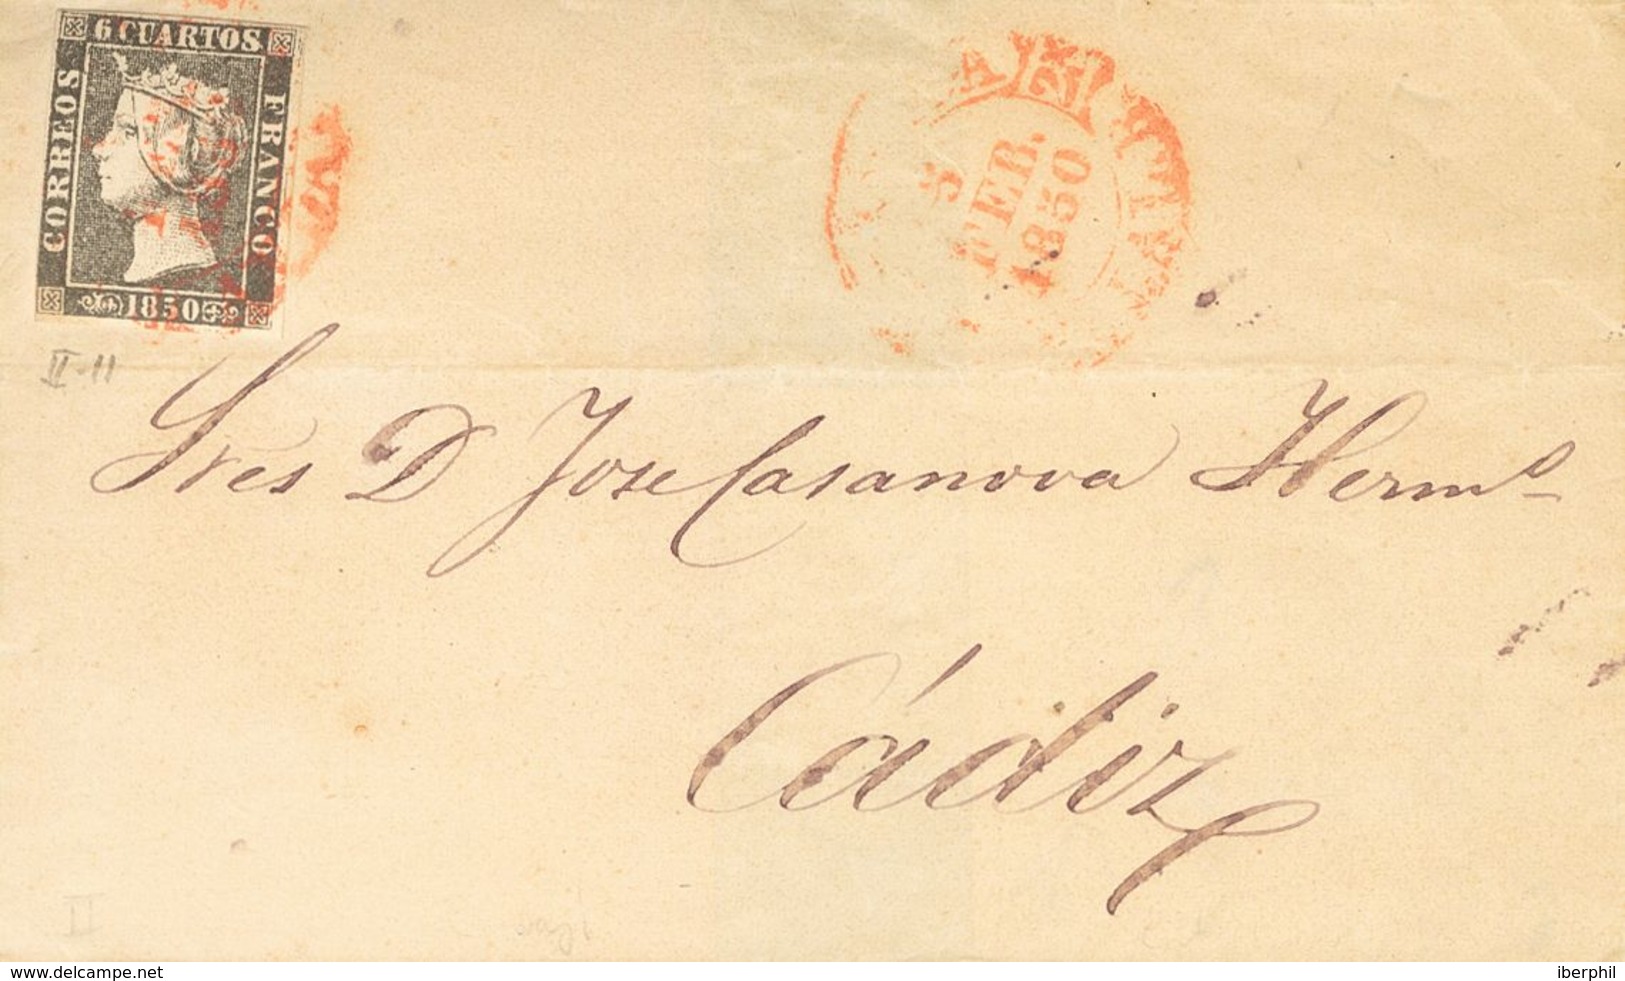 6 CUARTOS
CORREOS
FRANCO
1850
5
FEB.
1850
II-11
Sres D Jose Casanova Herms
Cádiz
II
www.delcampe.net
iberphil